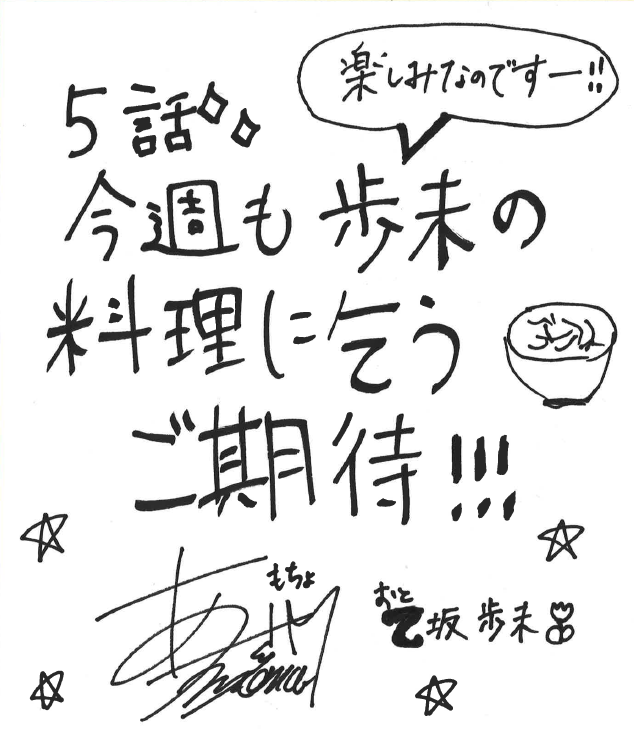 楽しみなのですー!!
5話
今週も歩未の
料理に乞う
ごはん
ご期待!!!
もちょ
おと
乙坂歩未